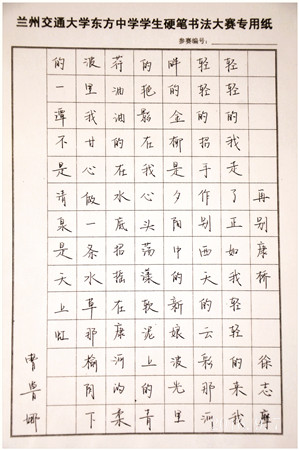 兰州交通大学东方中学学生硬笔书法大赛专用纸
参赛编号：
再别康桥 徐志摩
轻轻的我走了正如我轻轻的来我
轻轻的招手作别西天的云彩那河
畔的金柳是夕阳中的新娘波光里
的艳影在我心头荡漾软泥上的青
荇油油的在水底招摇在康河的柔
波里我甘心做一条水草那榆阴下
的一潭不是清泉是天上虹
曹娜